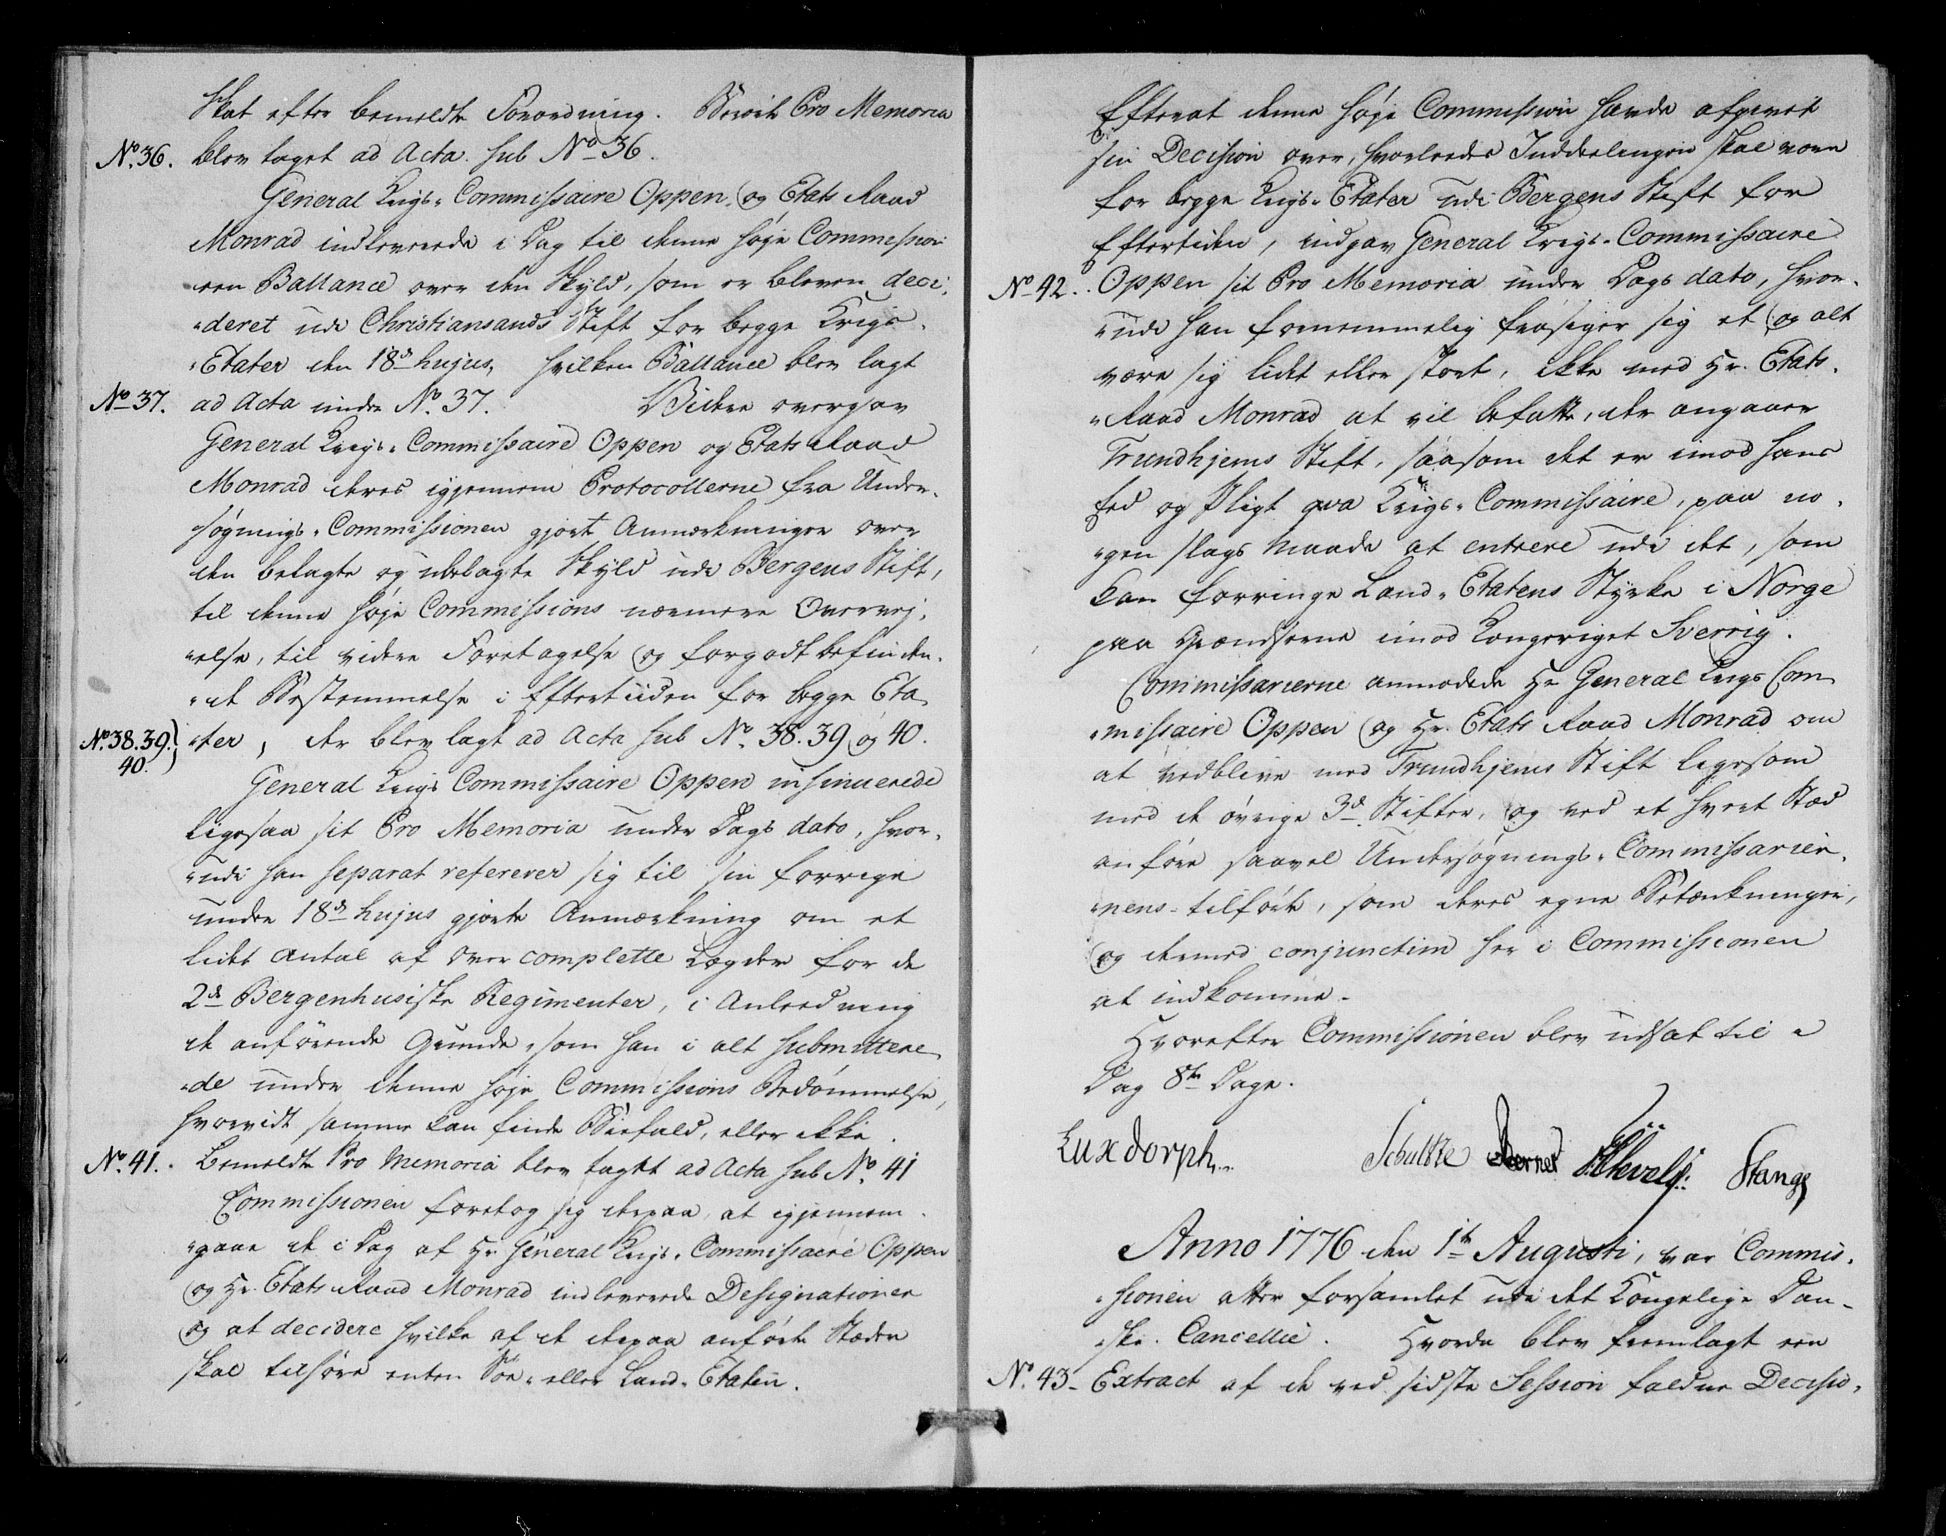 Skat efter bemeldte Forordning. Berørte Pro Memoria
No. 36. blev taget ad Acta sub No 36.
General Krigs-Commissaire Oppen og Etats Raad
Monrad indleverede i Dag til denne høje Commission
een Ballance over den Skyld, som er bleven deci-
-deret udi Christiansands Stift for begge Krigs-
-Etater den 18de hujus, hvilken Ballance blev lagt
No 37. ad Acta under No. 37. Videre overgav
General Krigs-Commissaire Oppen og Etats Raad
Monrad deres igjennem Protocollerne fra Under-
-søgnings-Commissionen gjort Anmærkninger over
den belagte og ubelagte Skyld udi Bergens Stift,
til denne høje Commissions nærmere Overvej-
-else, til videre Foretagelse og forgodtbefinden-
-de Bestemmelse i Eftertiiden for begge Eta
No. 38. 39. 40. -ter, der blev lagt ad Acta sub No. 38. 39 og 40.
General Krigs Commissaire Oppen insinuerede
ligesaa sit Pro Memoria under Dags dato, hvor-
-udi han separat refererer sig til sin forrige
under 18de hujus gjorte Anmærkning om et
lidet Antal af over complette Lægder for de
2de Bergenhusiske Regimenter, i Anledning
de anførende Grunde, som han i alt submittere
-de under denne høje Commissions Bedømmelse,
hvorvidt samme kan finde Biefald, eller ikke.
No. 41. Bemeldte Pro Memoria blev lagt ad Acta sub No. 41
Commissionen foretog sig derpaa, at igjennem-
-gaae de i Dag af Hr. General Krigs-Commissaire Oppen
og Hr. Etats Raad Monrad indleverede Designationer
og at decidere hvilke af de derpaa anførte Stæder
skal tilhøre enten Søe- eller Land-Etaten.
Efterat denne høje Commission havde afgivet
sin Decision over, hvorledes Inddeelingen skal være
for begge Krigs-Etater udi Bergens Stift for
Eftertiden, indgav General Krigs-Commissaire
No 42. Oppen sit Pro Memoria under Dags dato, hvor-
-udi han fornemmelig frasiger sig et og alt
være sig lidet eller stort, ikke med Hr. Etats-
-Raad Monrad at vil befatte, der angaaer
Trundhjems Stift, saasom det er imod hans
Eed og Pligt qva Krigs-Commissaire, paa no-
-gen slags Maade at entrere udi det, som
kan forringe Land-Etatens Styrke i Norge
paa Grændserne imod Kongeriget Sverrig.
Commissarierne anmodede Hr General Krigs Com
-missaire Oppen og Hr. Etats Raad Monrad om
at vedblive med Trundhjems Stift ligesom
med de øvrige 3de Stifter, og ved et hvert Stæd
anføre saavel Undersøgnings-Commissarier-
-nens tilførte, som deres egne Betænkninger,
og dermed conjunctim her i Commissionen
at indkomme.
Hvorefter Commissionen blev udsat til i
Dag 8te Dage.
Luxdorph. Schultze Stange
Anno 1776 den 1te Augusti, var Commis-
-sionen atter forsamlet udi det Kongelige Dan-
-ske Cancellie. Hvorda blev fremlagt een
No. 43. Extract af de ved sidste Session faldne Decisio-